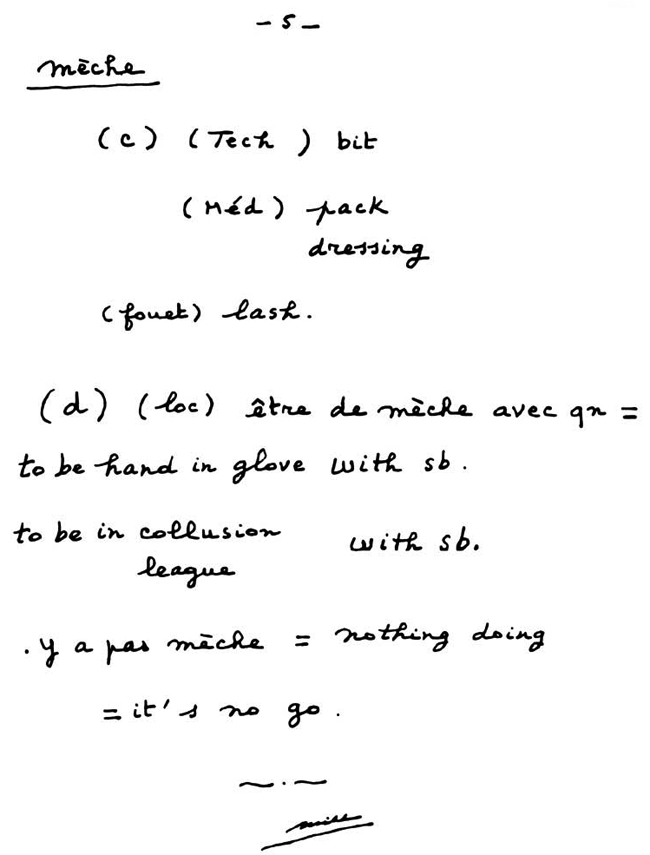 - 5 -
mèche
(c) (Tech) bit
(Méd) pack
dressing
(fouet) lash.
(d) (loc) être de mèche avec qn =
to be hand in glove with sb.
to be in collusion with sb.
league
. y a pas mèche = nothing doing
= it's no go.